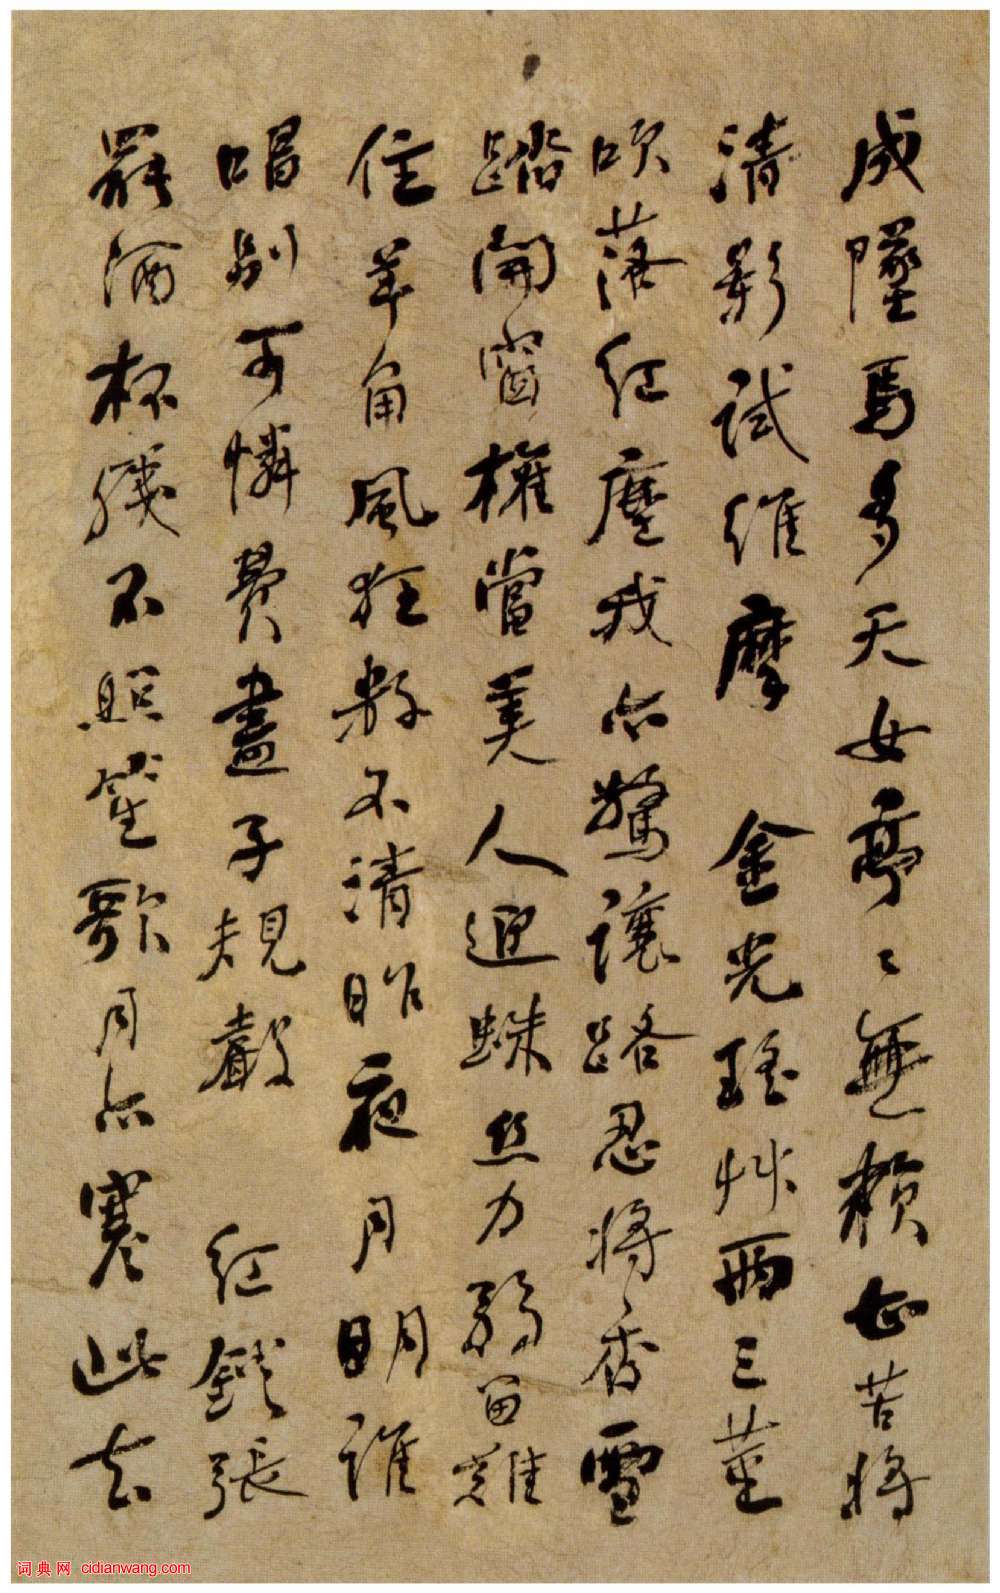 成墮馬多天女亭々無賴甚苦將
清影試維摩 金光瑤艸兩三莖
吹落紅塵我亦驚讓路忍將香雪
踏開窗權當美人迎蛛絲力弱留難
住羊角風狂數不清昨夜月明誰
唱別可憐費盡子規聲 紅鐙張
罷酒杯殘不照笙歌月亦寒此去
词典网 cidianwang.com